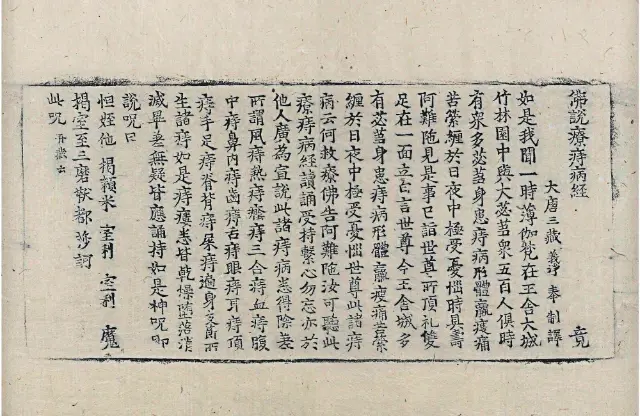 佛說療痔病經 竟
大唐三藏 義淨 奉 制譯
如是我聞一時薄伽梵在王舍大城
竹林園中與大苾芻衆五百人俱時
有衆多苾芻身患痔病形體羸瘦痛
苦縈纏於日夜中極受憂惱時具壽
阿難陁見是事已詣世尊所頂礼雙
足在一面立白言世尊今王舍城多
有苾芻身患痔病形體羸瘦痛苦縈
纏於日夜中極受憂惱世尊此諸痔
病云何救療佛告阿難陁汝可聽此
療痔病經讀誦受持繫心勿忘亦於
他人廣為宣說此諸痔病悉得除差
所謂風痔熱痔癊痔三合痔血痔腹
中痔鼻內痔齒痔舌痔眼痔耳痔頂
痔手足痔脊背痔屎痔遍身支節所
生諸痔如是痔瘻悉皆乾燥墮落消
滅畢差無疑皆應誦持如是神呪即
說呪曰
怛姪他 揭賴米 室利 室利 魔
揭室至三磨䩭都 莎訶
此呪